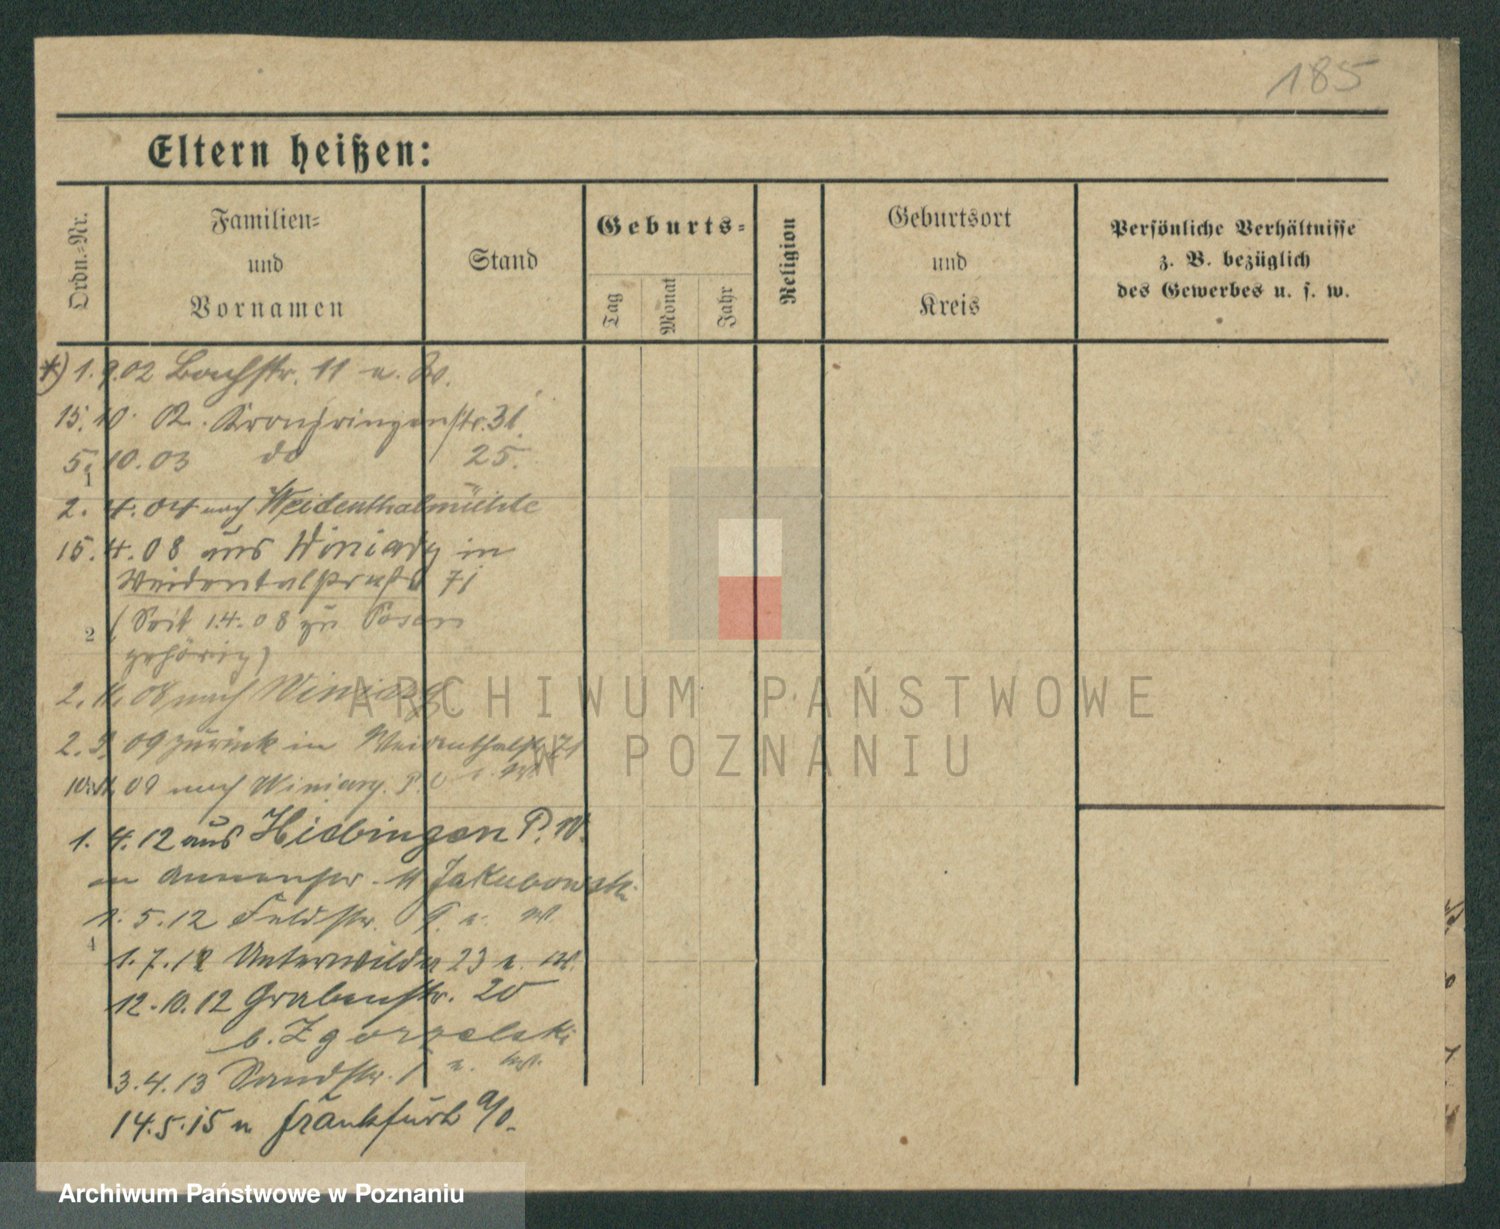 185
Eltern heißen:
Ordn.-Nr.
Familien-
und
Vornamen
Stand
Geburts-
Tag
Monat
Jahr
Religion
Geburtsort
und
Kreis
Persönliche Verhältnisse
z. B. bezüglich
des Gewerbes u. s. w.
*) 1.9.02 Bachstr. 11 u. W.
15.10.02. Kronprinzenstr. 31.
5.10.03 do 25.
1
2.4.04 nach Weidenthalmühle
15.4.08 aus Winiary in
Weidentalstraße 71
2 (Seit 1.4.08 zu Posen
gehörig)
2.11.08 nach Winiary
2.3.09 zurück in Weidenthalstr. 71
10.11.09 nach Winiary P.
1.4.12 aus P. W.
Annenstr. Jakubowski
1.5.12 Feldstr. 9. u. W
4
1.7.12 Unterwilda 23 u. W.
12.10.12 Grabenstr. 20
b. Zgorzelski
3.4.13 Sandstr. 1 u. W.
14.5.15 n Frankfurt a/O.
ARCHIWUM PAŃSTWOWE
W POZNANIU
Archiwum Państwowe w Poznaniu